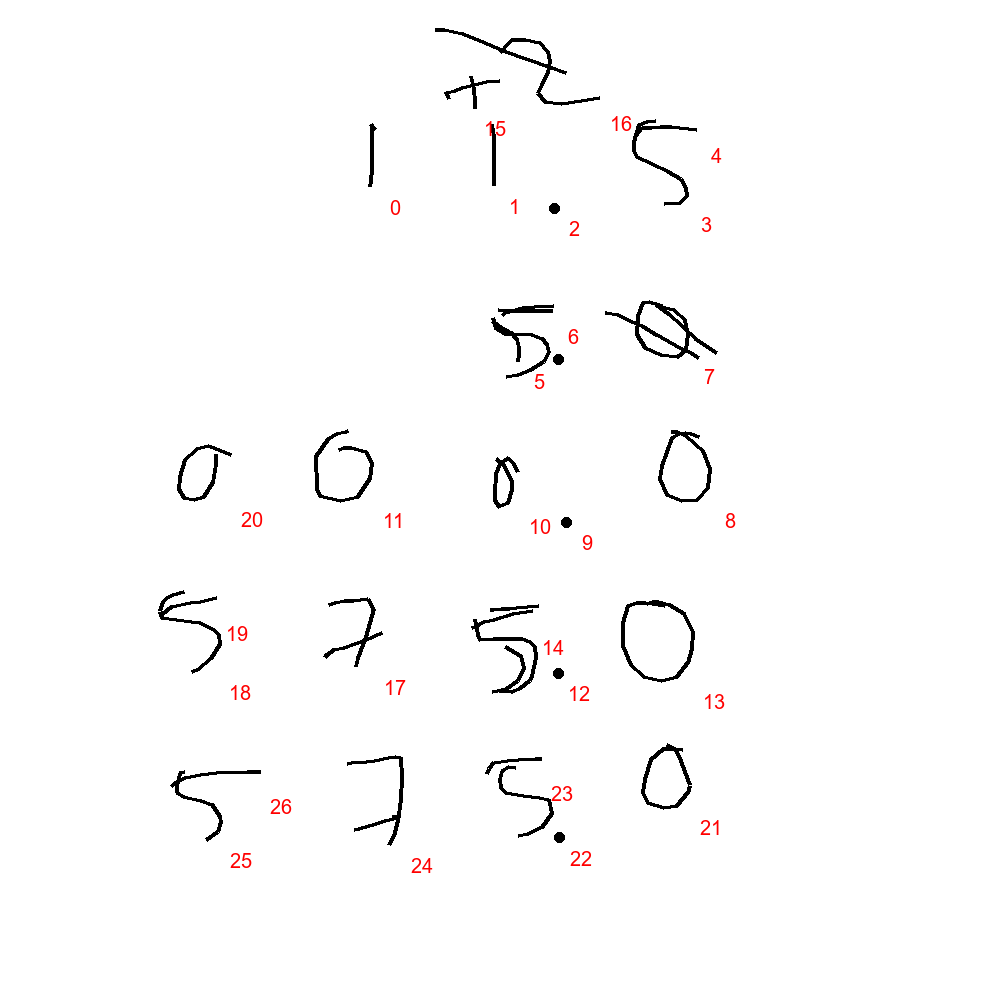 + 2
15 16
1 1 . 5
4
0 1 2 3
5 . 0
6
5 7
0 0 0 . 0
20 11 10 9 8
5 7 5 . 0
19 14
18 17 12 13
5 7 5 . 0
26 23
25 24 22 21